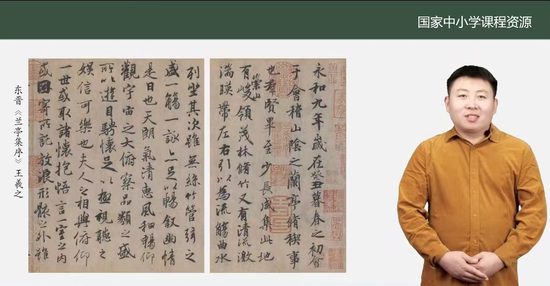 国家中小学课程资源
永和九年歲在癸丑暮春之初會
于會稽山陰之蘭亭脩禊事
也羣賢畢至少長咸集此地
有崇山峻領茂林脩竹又有清流激
湍暎帶左右引以為流觴曲水
列坐其次雖無絲竹管弦之
盛一觴一詠亦足以暢敘幽情
是日也天朗氣清惠風和暢仰
觀宇宙之大俯察品類之盛
所以遊目騁懷足以極視聽之
娛信可樂也夫人之相與俯仰
一世或取諸懷抱悟言一室之內
或因寄所託放浪形骸之外雖
东晋 《兰亭集序》 王羲之